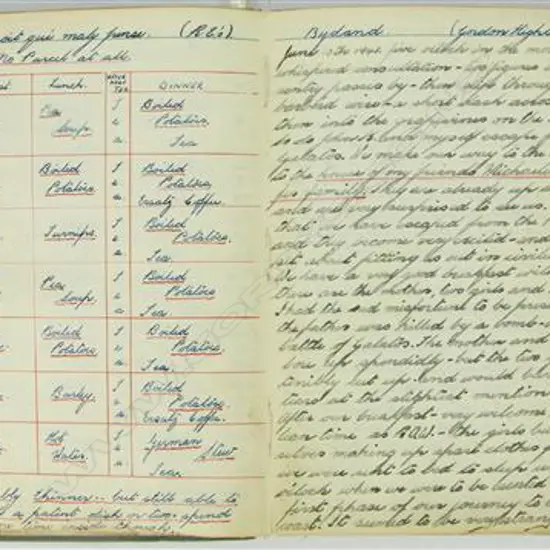 soit qui maly pense. (R.E's)
No Parcel at all.
Lunch. AFTER NOON TEA. DINNER
Pea Soup. T e a Boiled Potatoes. Tea
Boiled Potatoes T e a Boiled Potatoes Ersatz Coffee.
Turnips. T e a Boiled Potatoes. Tea.
Pea Soup. T e a Boiled Potatoes Tea
Boiled Potatoes T e a Boiled Potatoes. Tea.
Barley T e a Boiled Potatoes. Ersatz Coffee.
Hot Water. T e a German Stew Tea.
thinner:- but still able to
a patent dish or two. spend
time
Bydand. (Gordon High
June five o'clock in the mor
whispered consultation - two figures
sentry passes by - then slip through
barbed wire - a short dash across
then into the on the
and myself escape
Galatas. We make our way to the
to the house of my friends
family. They are already up
and will very surprised to see us.
that we have escaped from the
and they become very excited - and
set about fitting us out in civilian
We have a very good breakfast with
there are the mother, two girls and
I had the sad misfortune to be pres
the father was killed by a bomb -
battle of Galatas. The mother and
bore up splendidly - but the two
terribly cut up. and would be
tears at the slightest mention
After our breakfast - very welcome
time as P.O.W. - the girls bu
selves making up spare clothes
we were sent to bed to sleep
o'clock when we were to be
first phase of our journey to
coast. It seemed to be very strange